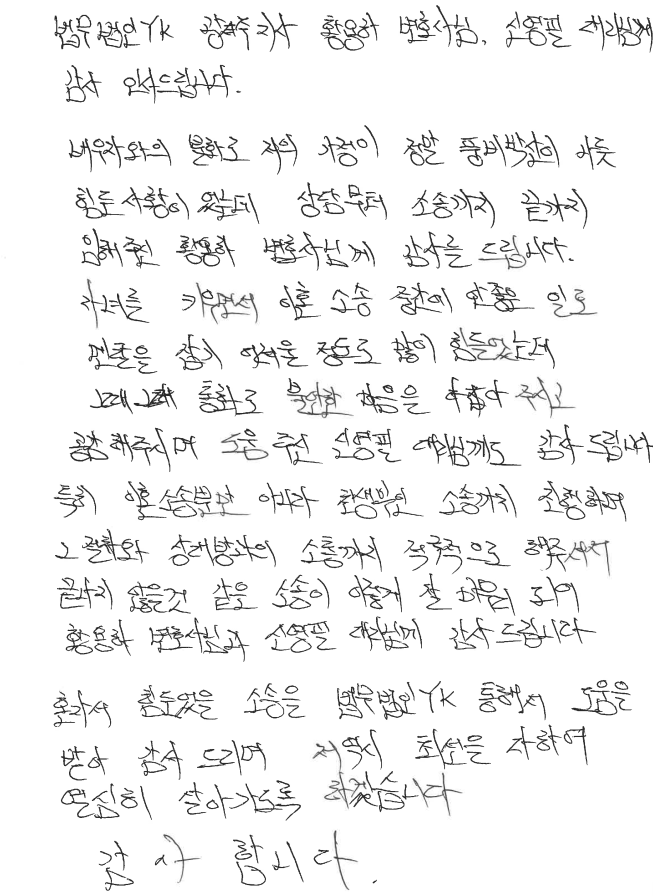 법무법인YK 광주지사 황용하 변호사님, 신영필 대리님께
감사 인사드립니다.
배우자와의 불화로 저의 가정이 정말 풍비박산이 나듯
힘든 사황이 있는데 상담부터 소송까지 끝까지
임해주신 황용하 변호사님께 감사를 드립니다.
자녀를 키우면서 이혼 소송 중간에 안좋은 일로
멘탈을 잡기 어려울 정도로 많이 힘들었는데
그때그때 통화로 불안한 마음을 다잡아 주시고
공감해주시며 도움 주신 신영필 대리님께도 감사드립니다
특히 이혼소송뿐만 아니라 소송까지 진행하며
그 절차와 상대방과의 소통까지 적극적으로 해주셔서
끝나지 않을것 같은 소송이 이렇게 잘 마무리 되어
황용하 변호사님과 신영필 대리님께 감사드립니다
혼자서 힘들었을 소송을 법무법인YK 통해서 도움을
받아 감사 드리며 저 역시 최선을 다하여
열심히 살아가도록 하겠습니다
감사 합니다.